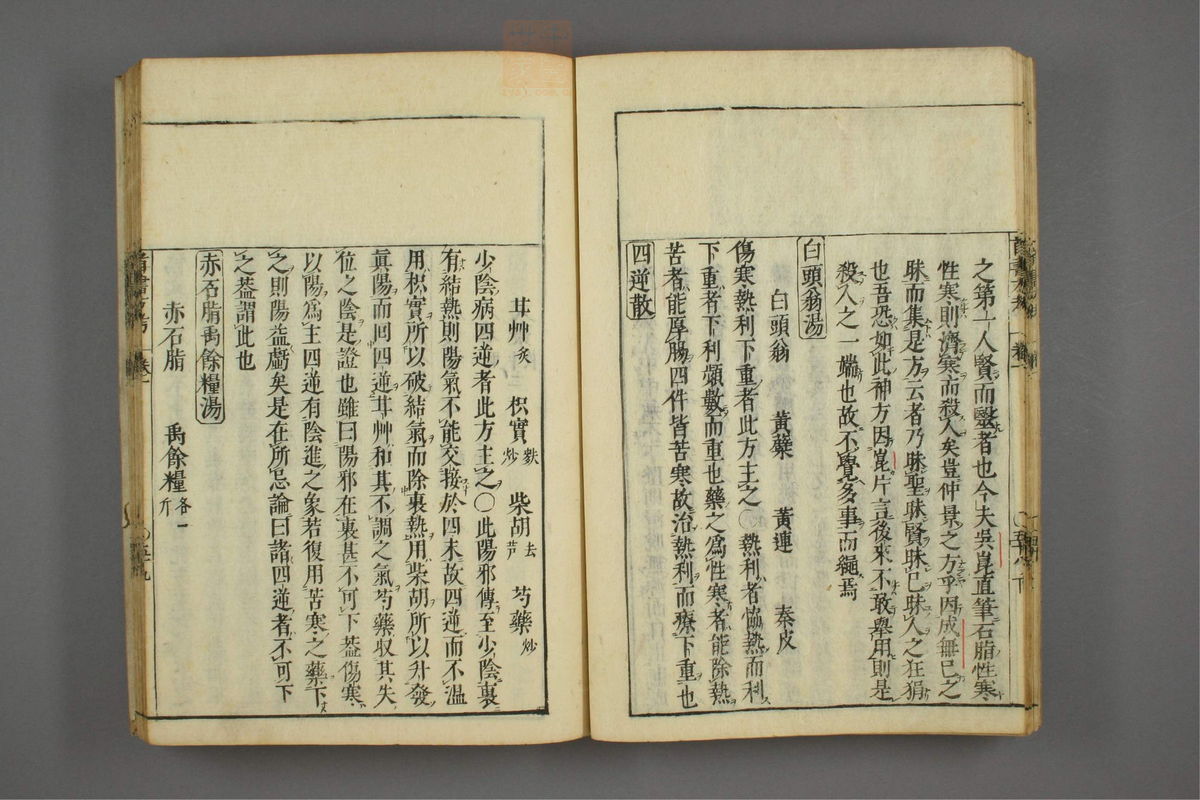 之第一人賢而毉者也今夫吳崑直筆石脂性寒
性寒則濟寒而殺人矣豈仲景之方乎因成無已之
昧而集是方云者乃昧聖昧賢昧已昧人之狂狷
也吾恐如此神方因崑片言後來不敢舉用則是
殺人之一端也故不覺多事而繩焉
白頭翁湯
白頭翁 黃蘗 黃連 秦皮
傷寒熱利下重者此方主之〇熱利者恊熱而利
下重者下利頻數而重也藥之爲性寒者能除熱
苦者能厚腸四件皆苦寒故治熱利而療下重也
四逆散
甘艸炙 枳實麩炒 柴胡去芦 芍藥炒
少陰病四逆者此方主之〇此陽邪傳至少陰裏
有結熱則陽氣不能交接於四末故四逆而不温
用枳實所以破結氣而除裏熱用柴胡所以升發
眞陽而回四逆甘艸和其不調之氣芍藥收其失
位之陰是證也雖曰陽邪在裏甚不可下葢傷寒
以陽爲主四逆有陰進之象若復用苦寒之藥下
之則陽益虧矣是在所忌論曰諸四逆者不可下
之葢謂此也
赤石脂禹餘糧湯
赤石脂 禹餘糧各一斤